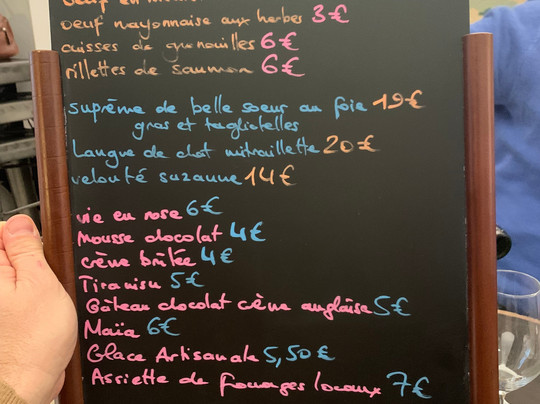 oeuf mayonnaise aux herbes 3€
cuisses de grenouilles 6€
rillettes de saumon 6€
suprême de belle soeur au foie 19€
gras et tagliatelles
Langue de chat mitraillette 20€
velouté suzanne 14€
vie en rose 6€
Mousse chocolat 4€
crème brûlée 4€
Tiramisu 5€
Gâteau chocolat crème anglaise 5€
Maïa 6€
Glace Artisanale 5,50€
Assiette de fromages locaux 7€